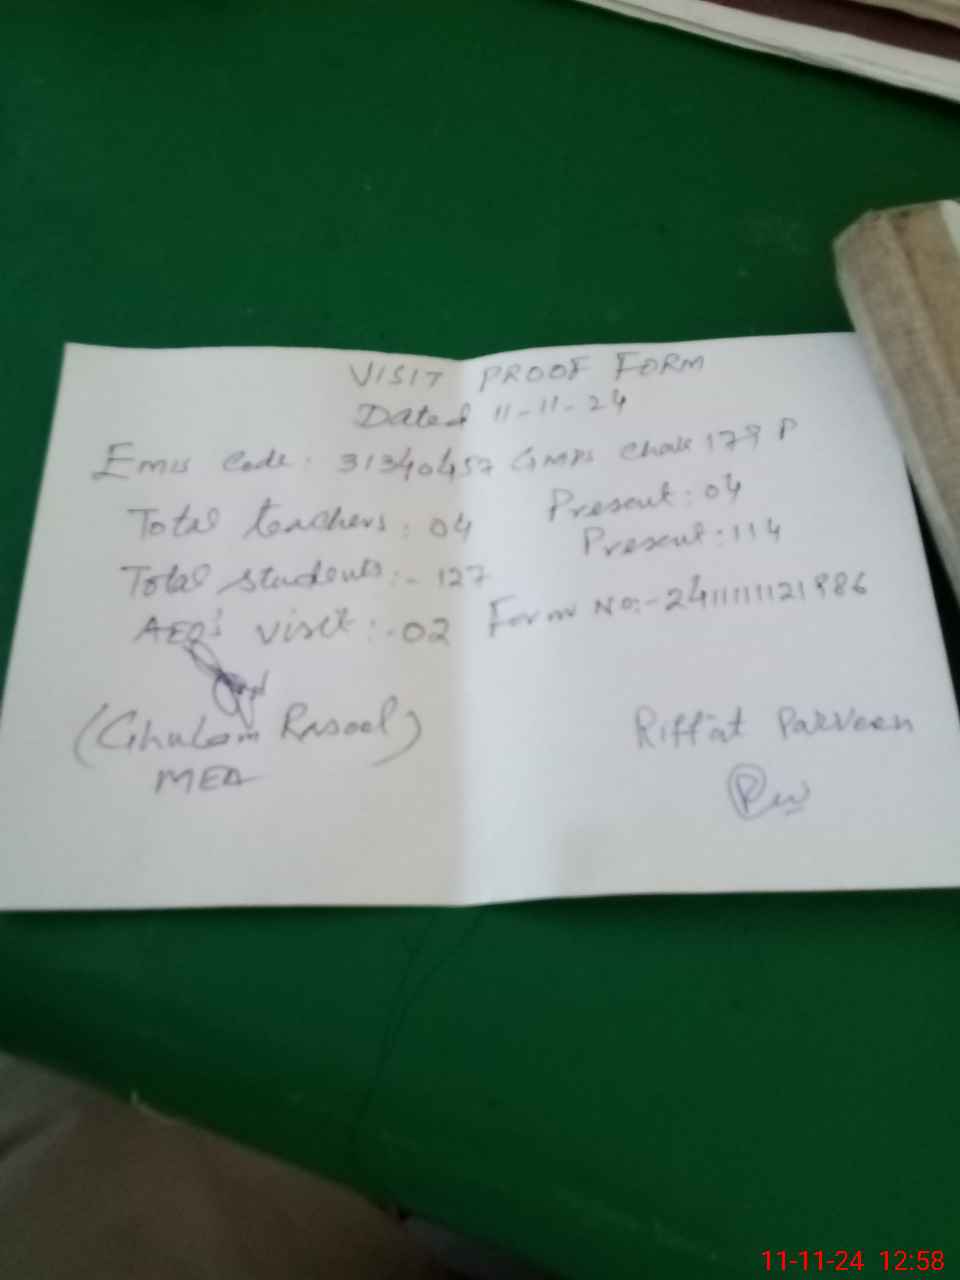 VISIT PROOF FORM
Dated 11-11-24
Emis Code: 31340457 GMPS Chak 179 P
Total teachers: 04 Present: 04
Total students:- 127 Present: 114
AEO's visit:- 02 Form No:-
(Ghulam Rasool)
MEA
Riffat Parveen
11-11-24 12:58